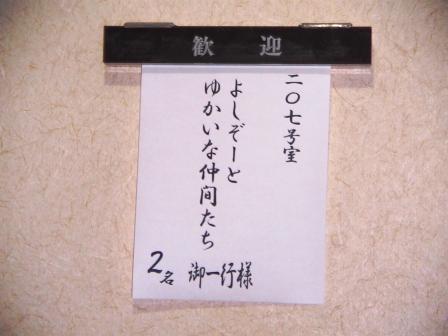 歓迎
二〇七号室
よしぞーと
ゆかいな仲間たち
御一行様
2名